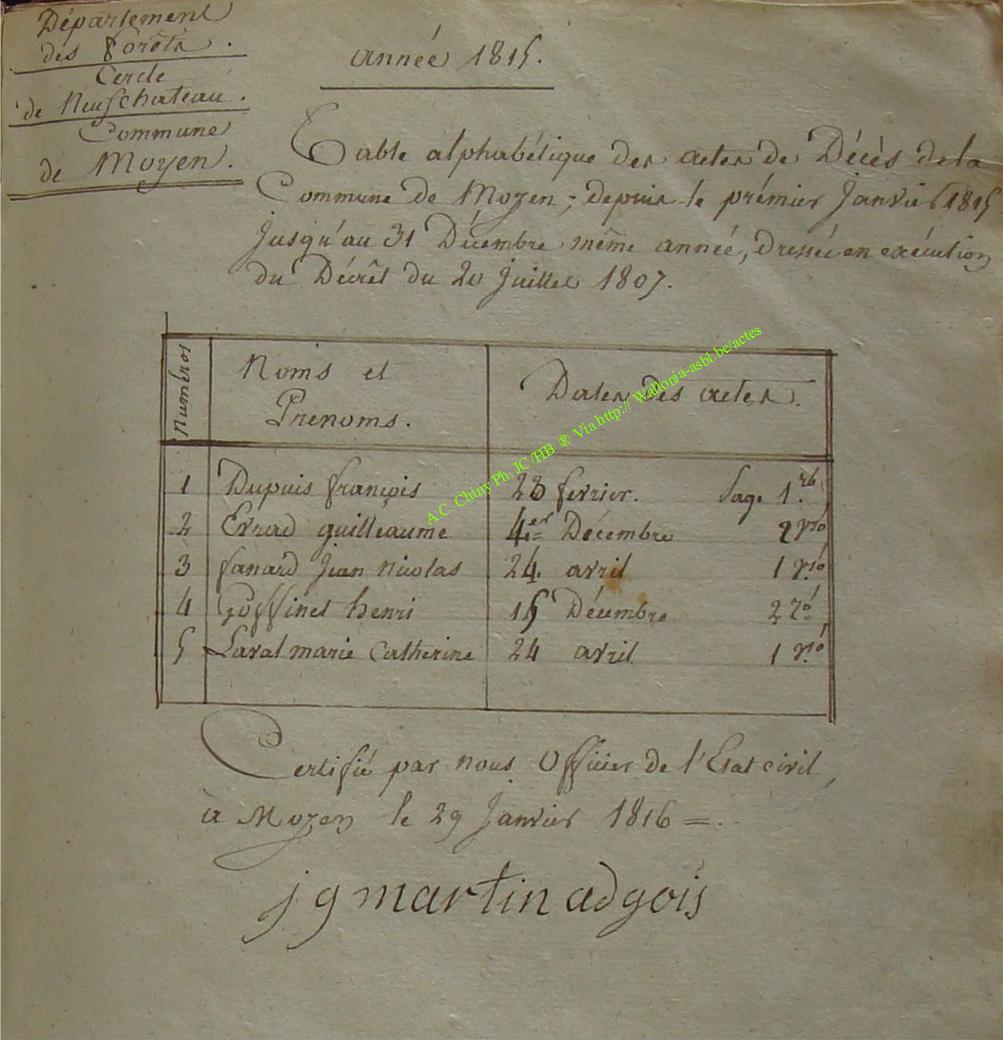 Département
des Forêts.
Cercle
de Neufchateau.
Commune
de Moyen.
année 1815.
Table alphabétique des actes de Décès de la
Commune de Moyen; depuis le prémier Janvier 1815
Jusqu'au 31 Décembre même année, Dressée en exécution
du Décrêt du 20 Juillet 1807.
Numéros
Noms et
Prenoms.
Dates des actes.
1 Dupuis françois 28 fevrier. Page 1.
2 Evrad guilleaume 4 Décembre 2 vso
3 fanard Jean Nicolas 24. avril 1 vso
4 Goffinet henri 15 Décembre 2
5 Laval marie Catherine 24 avril 1 vso
Certifié par nous Officier de l'Etat civil,
à Moyen le 29 Janvier 1816 =.
j g martin adgois
A.C. Chiny Ph JC/HB ® Via http://Wallonia-asbl.be/actes